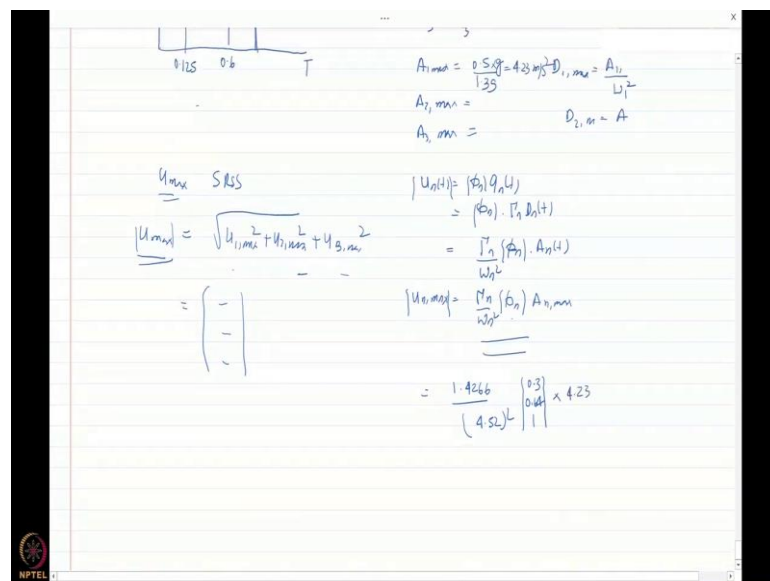 ...
X
0.125 0.6 T
A₁max = 0.5xg/1.39 = 4.23 m/s² D₁,max = A₁,/ω₁²
A₂,max =
D₂,m = A
A₃,max =
Umax SRSS
|Umax| = √u₁,max² + u₂,max² + u₃,max²
= { - - - }
{Un(t)} = {ϕn} qn(t)
= {ϕn} . Γn Dn(t)
= Γn/ωn² {ϕn} . An(t)
|Un,max| = Γn/ωn² {ϕn} An,max
= 1.4266/(4.52)² {0.3 0.64 1} × 4.23
NPTEL